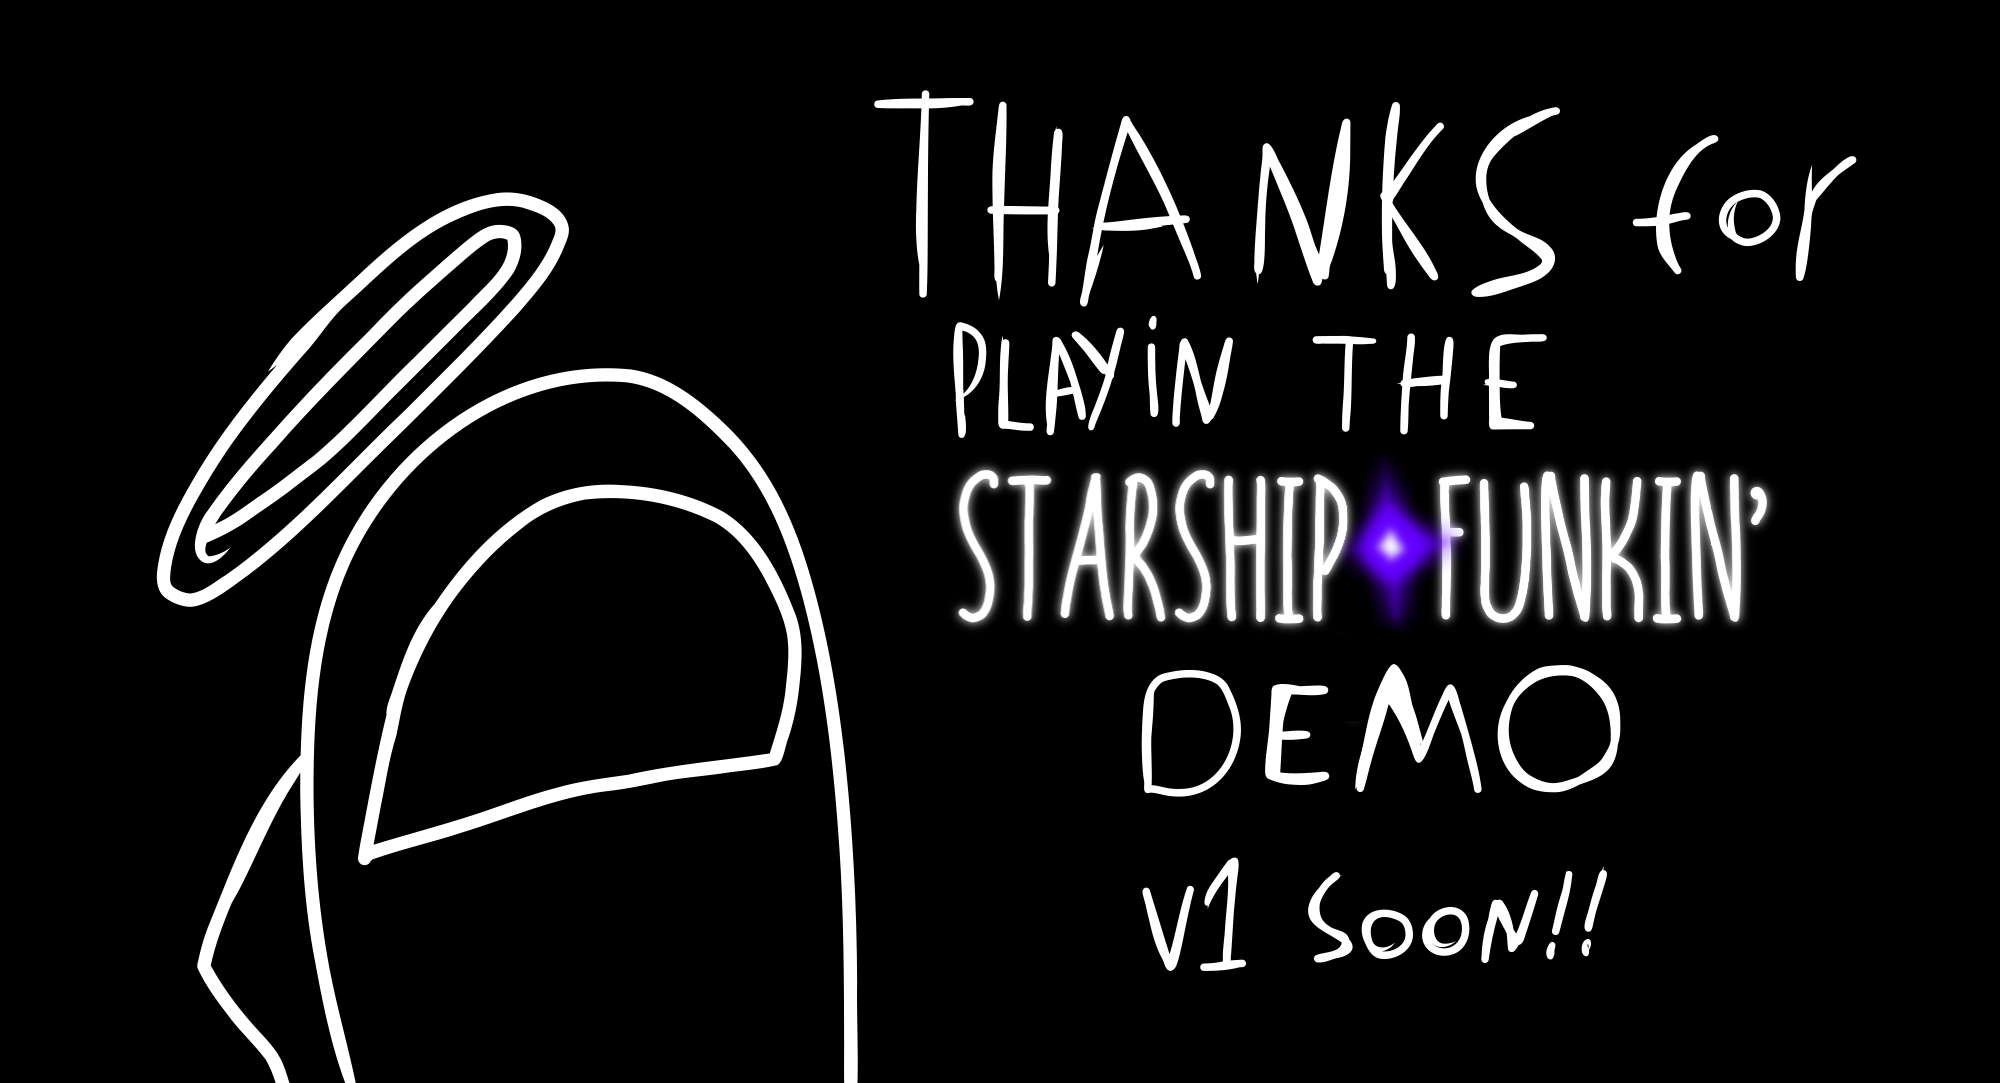 THANKS for
PLAYiN THE
STARSHIP FUNKIN'
DEMO
V1 SOON!!